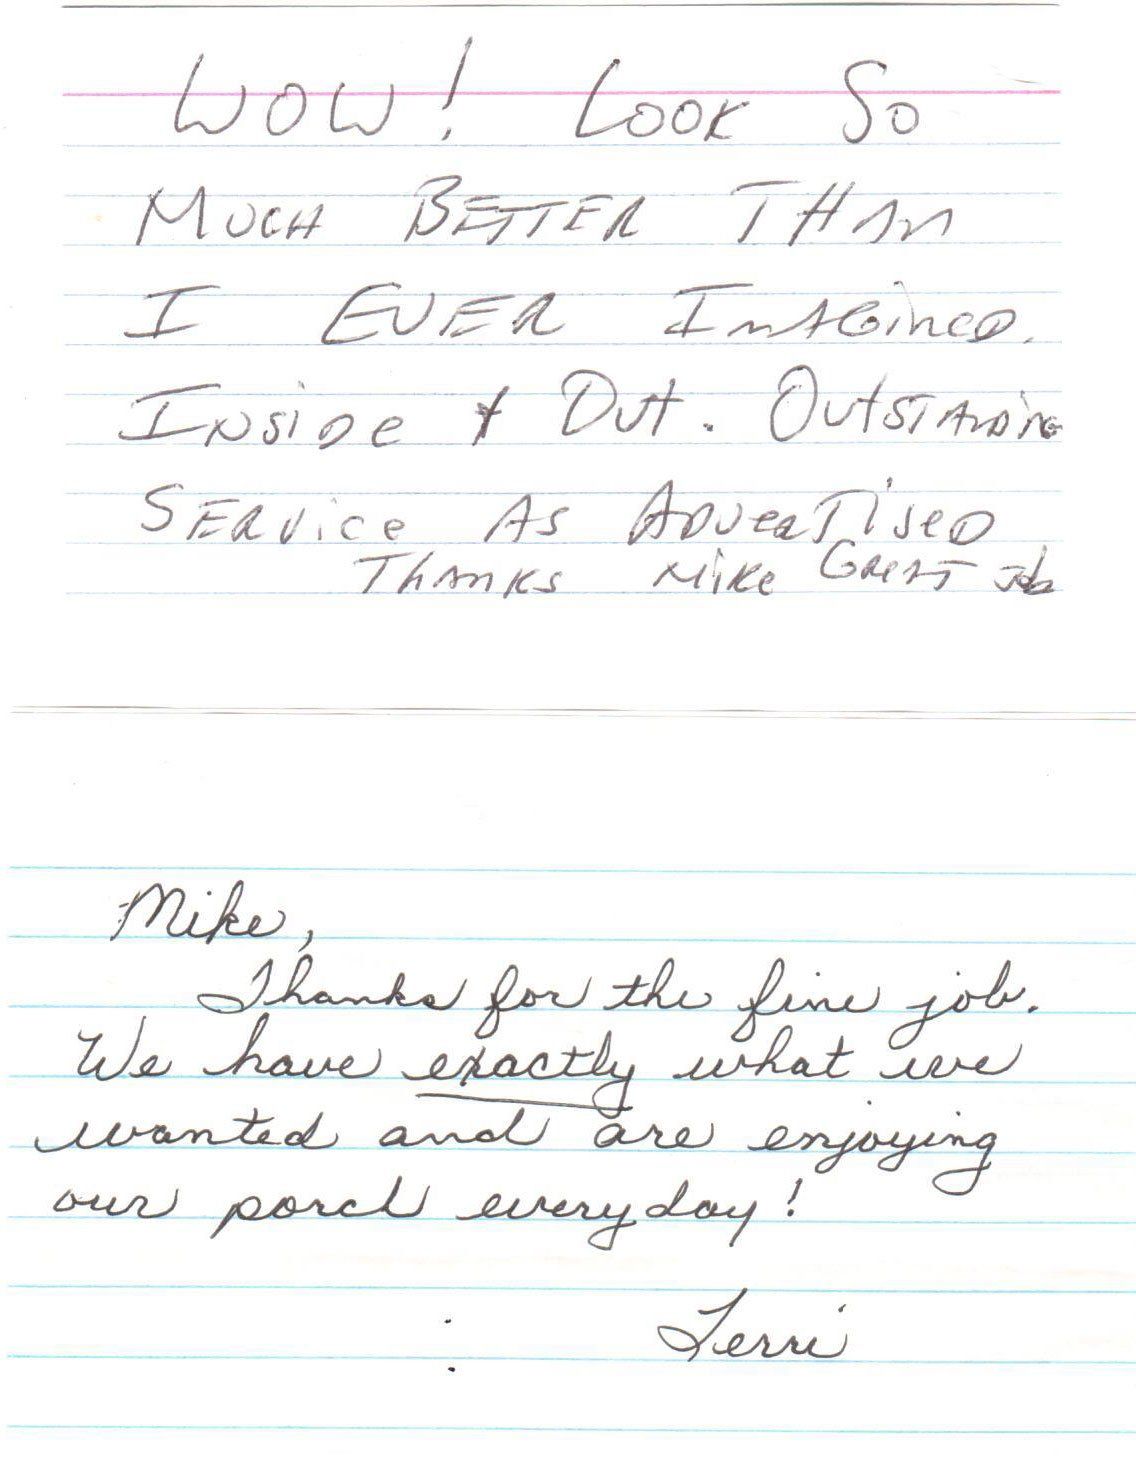 WOW! LOOK SO
MUCH BETTER THAN
I EVER IMAGINED.
INSIDE & OUT. OUTSTANDING
SERVICE AS ADVERTISED
THANKS MIKE GREAT Job
Mike,
Thanks for the fine job.
We have exactly what we
wanted and are enjoying
our porch everyday!
Terri